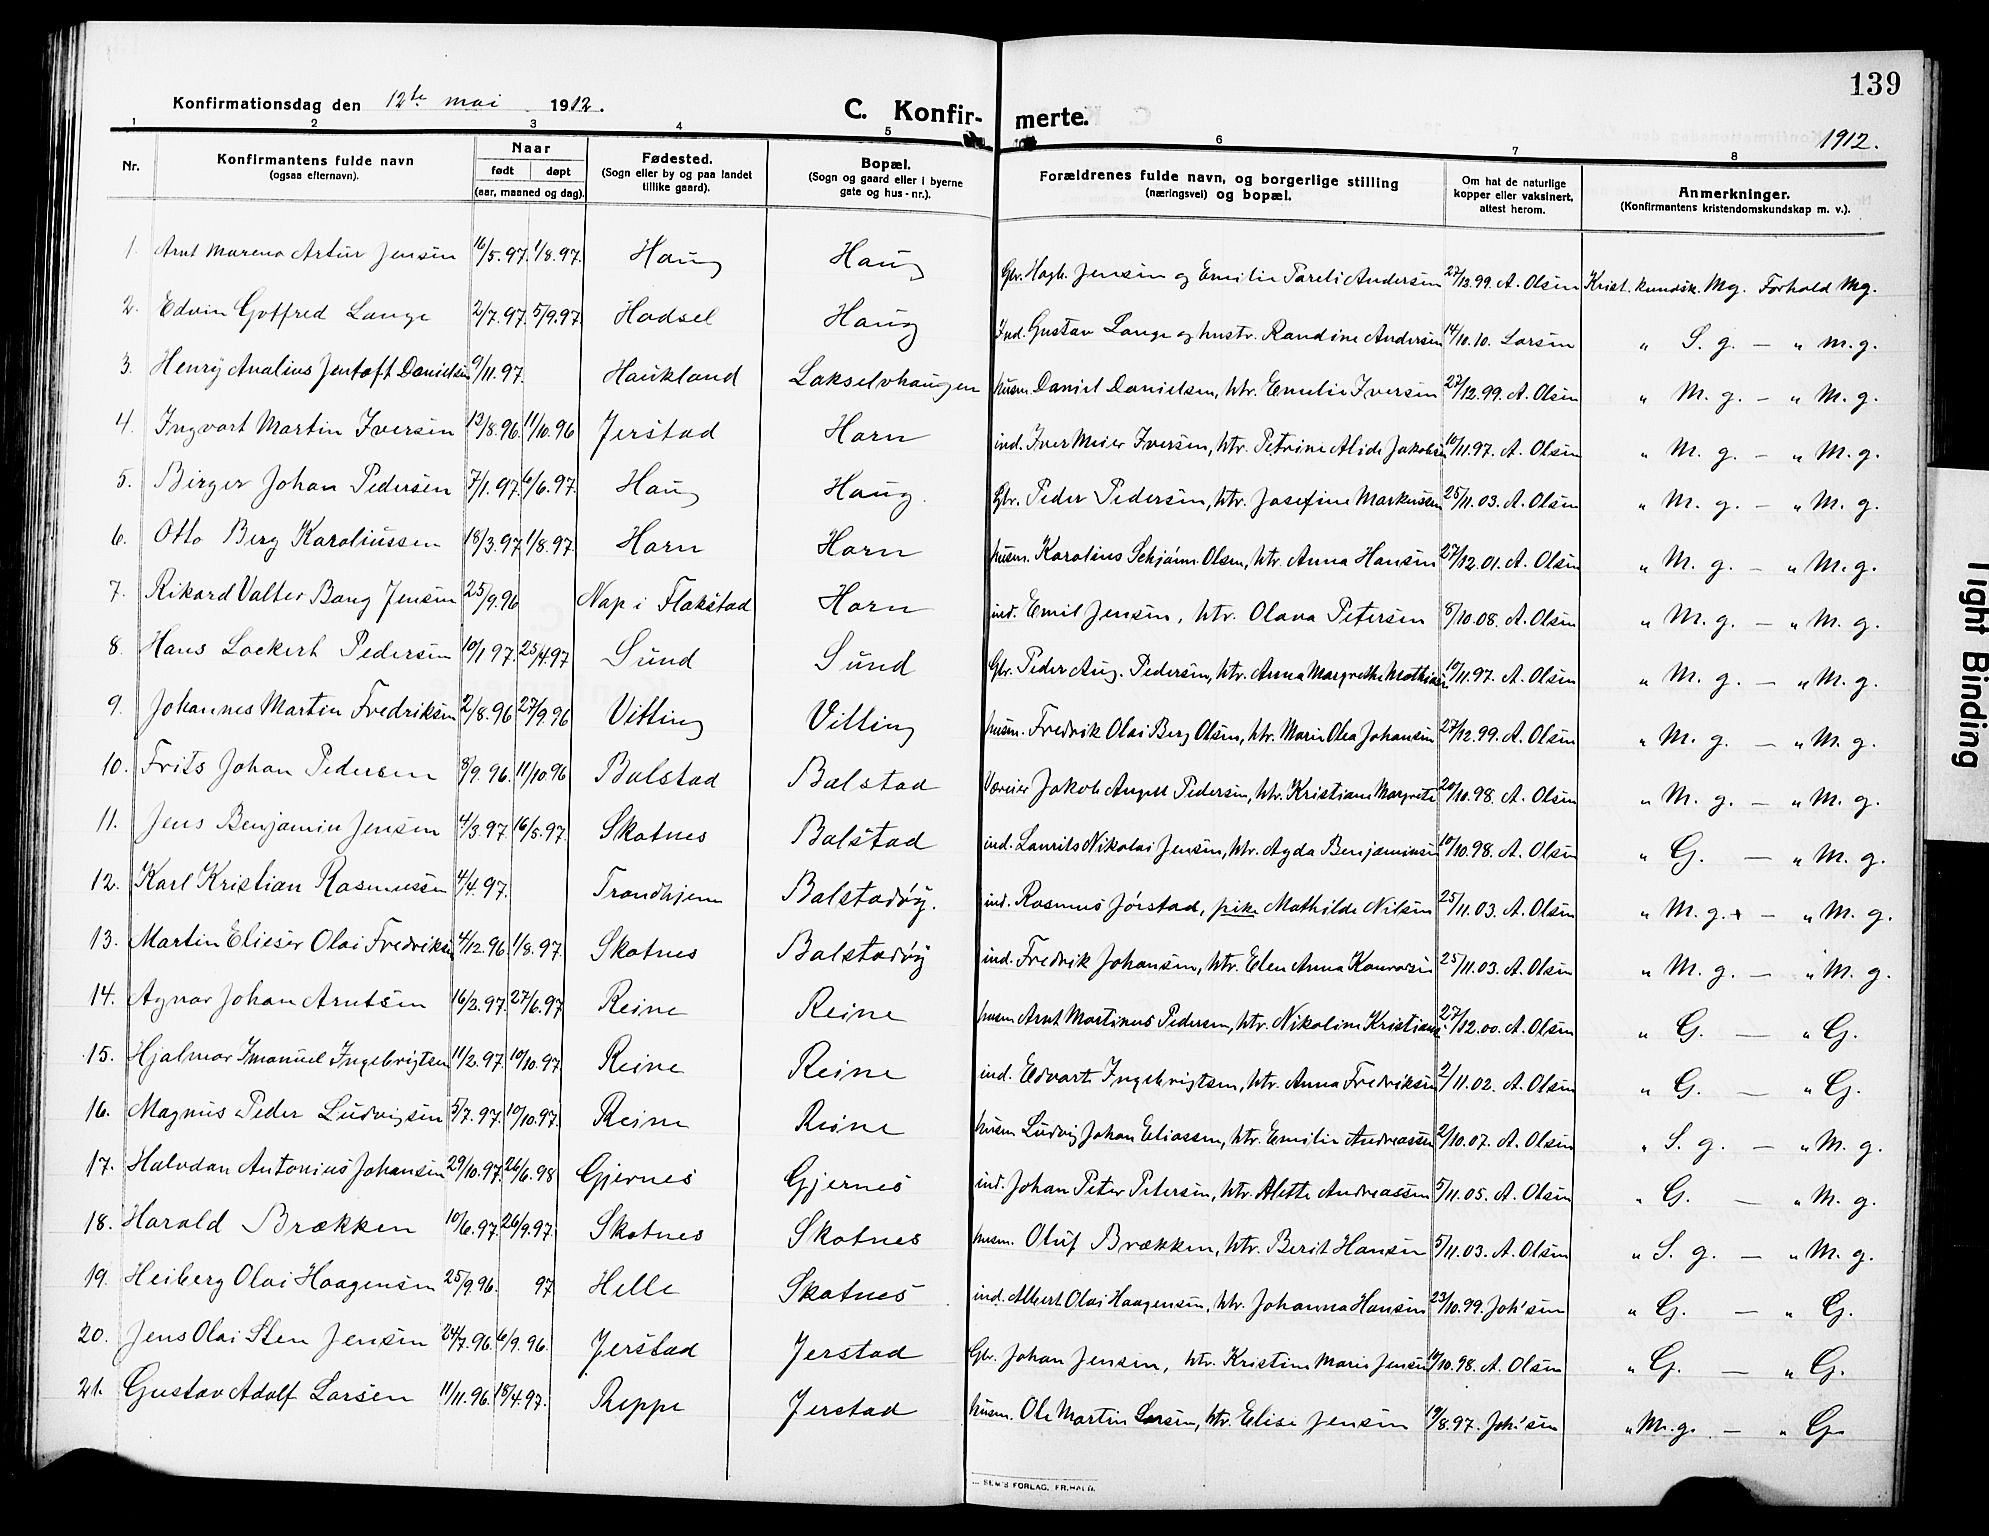 139
Konfirmationsdag den 12te mai 1912.
C. Konfir- merte.
1912.
1 2 3 4 5 6 7 8
Nr. Konfirmantens fulde navn (ogsaa efternavn). Naar født døpt (aar, maaned og dag). Fødested. (Sogn eller by og paa landet tillike gaard). Bopæl. (Sogn og gaard eller i byerne gate og hus-nr.). Forældrenes fulde navn, og borgerlige stilling (næringsvei) og bopæl. Om hat de naturlige kopper eller vaksinert, attest herom. Anmerkninger. (Konfirmantens kristendomskundskap m. v.).
1. Arnt Mareno Artur Jensen 16/5.97. 1/8.97. Haug Haug Gbr. Hagb. Jensen og Emilie Pareli Andersen 27/12.99. A. Olsen Krist. kundsk. Mg. Forhold Mg.
2. Edvin Gotfred Lange 2/7.97. 5/9.97. Hadsel Haug Ind. Gustav Lange og hustr. Randine Andersen 14/10.10. Larsen " S. g. — " M. g.
3. Henry Analius Jentoft Danielsen 9/11.97. Haukland Lakselvhaugen husm. Daniel Danielsen, htr. Emelie Iversen 27/12.99. A. Olsen " M. g. — " M. g.
4. Ingvart Martin Iversen 13/8.96. 11/10.96 Jerstad Horn ind. Iver Meier Iversen, htr. Petrine Alide Jakobsen 10/11.97. A. Olsen " M. g. — " M. g.
5. Birger Johan Pedersen 7/1.97. 6/6.97. Haug Haug. Gbr. Peder Pedersen, htr. Josefine Markussen 25/11.03. A. Olsen " M. g. — " M. g.
6. Otto Berg Karoliussen 18/3.97. 1/8.97. Horn Horn husm. Karolius Schjønn Olsen, htr. Anna Hansen 27/12.01. A. Olsen " M. g. — " M. g.
7. Rikard Valter Bang Jensen 25/9.96 Nap i Flakstad Horn ind. Emil Jensen, htr. Olava Petersen 8/10.08. A. Olsen " M. g. — " M. g.
8. Hans Lockert Pedersen 10/1 97. 25/4.97 Sund Sund Gbr. Peder Aug. Pedersen, htr. Anna Margrethe Mathisen 10/11.97. A. Olsen " M. g. — " M. g.
9. Johannes Martin Fredriksen 2/8.96 27/9.96 Vitting Vitting husm. Fredrik Olai Berg Olsen, htr. Marie Olea Johansen 27/12.99. A. Olsen " M. g. — " M. g.
10. Frits Johan Pedersen 8/9.96. 11/10.96 Balstad Balstad Væreier Jakob August Pedersen, htr. Kristiane Margrete 20/10.98. A. Olsen " M. g. — " M. g.
11. Jens Benjamin Jensen 4/3.97. 16/5.97. Skotnes Balstad ind. Laurits Nikolai Jensen, htr. Agda Benjaminsen 10/10.98. A. Olsen " G. — " M. g.
12. Karl Kristian Rasmussen 4/4.97. Trondhjem Balstadøy. ind. Rasmus Jørstad, pike Mathilde Nilsen 25/11.03. A. Olsen " M. g. + — " M. g.
13. Martin Elieser Olai Fredriksen 4/12.96. 1/8.97. Skotnes Balstadøy ind. Fredrik Johansen, htr. Elen Anna Konradsen 25/11.03. A. Olsen " M. g. — " M. g.
14. Agnar Johan Arntsen 16/2.97. 27/6.97 Reine Reine husm Arnt Martinus Pedersen, htr. Nikoline Kristians. 27/12.00. A. Olsen " G. — " G.
15. Hjalmar Imanuel Ingebrigtsen 11/2.97. 10/10.97 Reine Reine ind. Edvart Ingebrigtsen, htr. Anna Fredriksen 2/11.02. A. Olsen " G. — " G.
16. Magnus Peder Ludvigsen 5/7.97. 10/10.97. Reine Reine husm Ludvig Johan Eliassen, htr. Emilie Andreassen 2/10.07. A. Olsen " S. g. — " M. g.
17. Halvdan Antonius Johansen 29/10.97. 26/6.98 Gjernes Gjernes ind. Johan Peter Petersen, htr. Alette Andreassen 5/11.05. A. Olsen " G. — " M. g.
18. Harald Brækken 10/6.97. 26/9.97. Skotnes Skotnes husm. Oluf Brækken, htr. Berit Hansen 5/11.03. A. Olsen " S. g. — " M. g.
19. Heiberg Olai Haagensen 25/9.96. 97 Helle Skotnes ind. Albert Olai Haagensen, htr. Johanna Hansen 23/10.99. Joh'sen " G. — " G.
20. Jens Olai Sten Jensen 24/7.96. 6/9.96. Jerstad Jerstad Gbr. Johan Jensen, htr. Kristine Marie Jensen 10/10.98. A. Olsen " G. — " G.
21. Gustav Adolf Larsen 11/11.96. 18/4.97. Reppe Jerstad husm. Ole Martin Larsen, htr. Elise Jensen 19/8.97. Joh'sen " M. g. — " G.
SEM'S FORLAG, FR.HALD.
Tight Binding